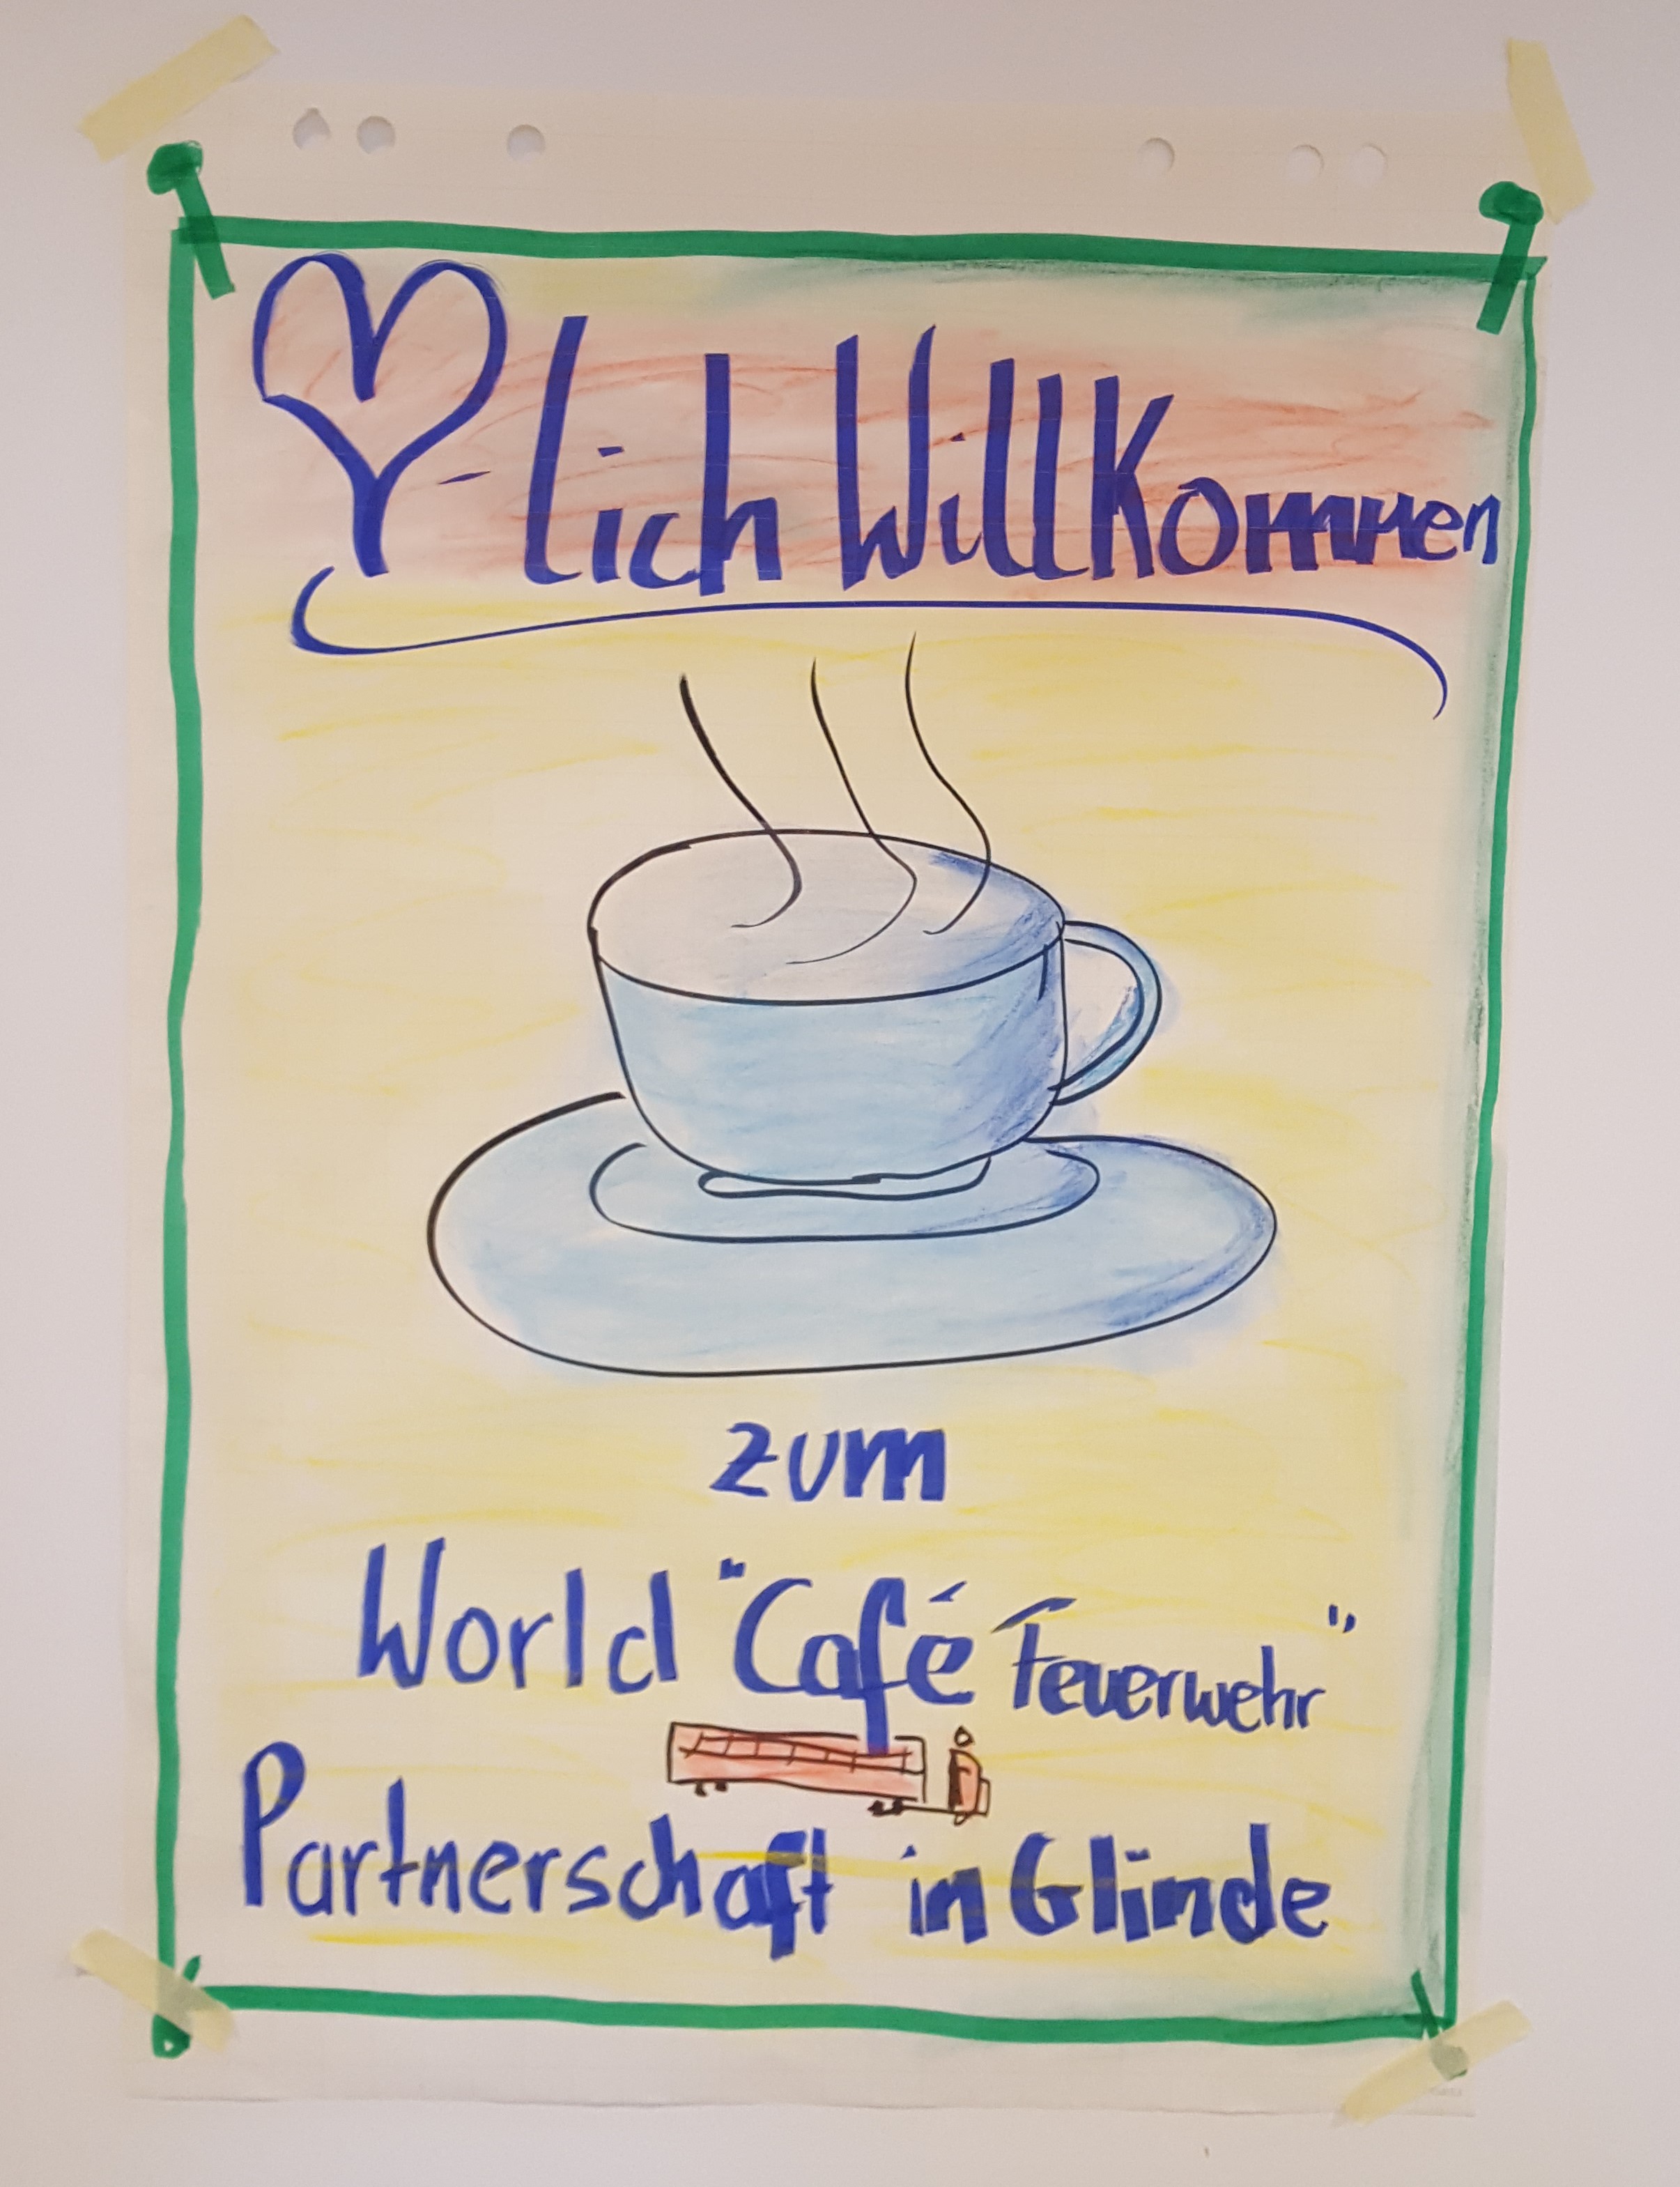 ♡-lich Willkommen
zum
World "Café Feuerwehr"
Partnerschaft in Glinde